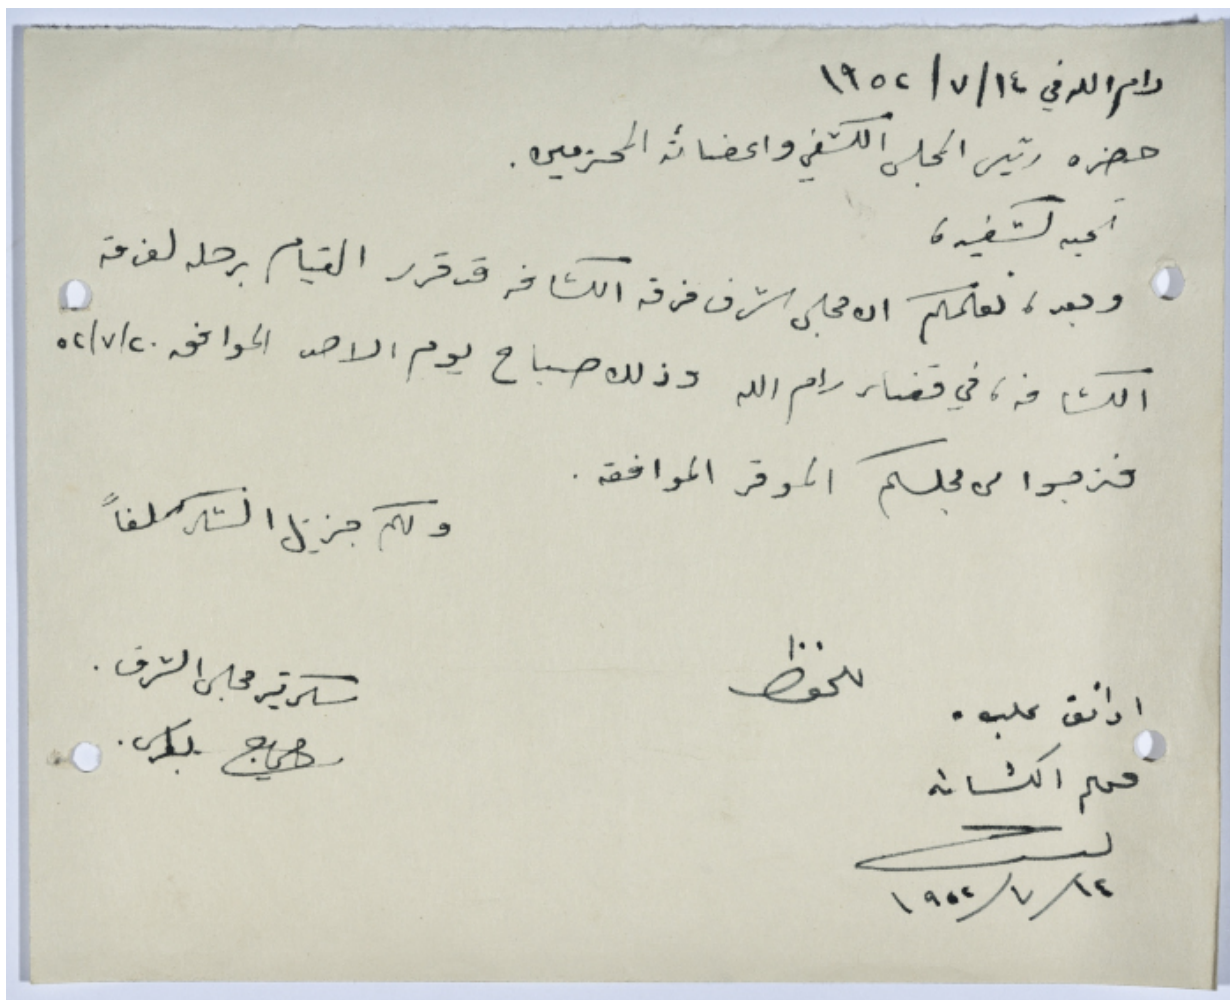 رام الله في ١٤/٧/١٩٥٢
حضرة رئيس المجلس الكشفي واعضائه المحترمين.
تحية كشفية،
وبعد، نعلمكم ان مجلس شرف فرقة الكشافة قد قرر القيام برحلة لفرقة
الكشافة، في قضاء رام الله وذلك صباح يوم الاحد الموافق ٢٠/٧/٥٢
فنرجوا من مجلسكم الموقر الموافقة.
ولكم جزيل الشكر سلفاً
سكرتير مجلس الشرف.
للحفظ
اوافق عليه.
الكشافة
١٤/٧/١٩٥٢